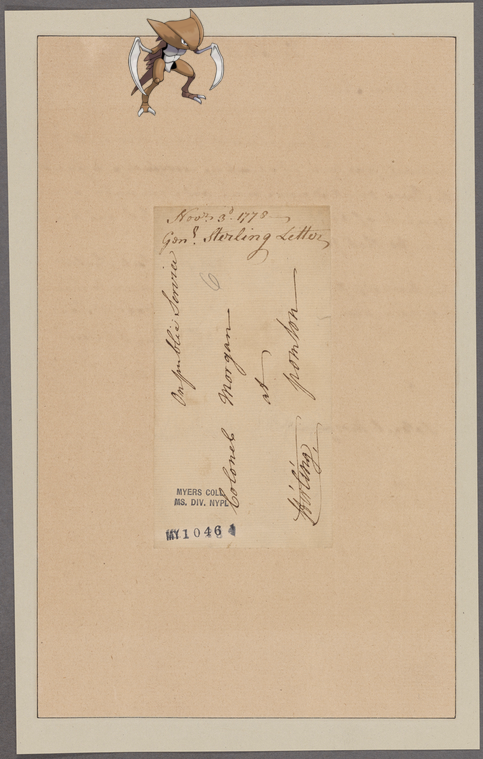 Novr. 3d. 1778
Genl. Sterling Letter
On public Service
Colonel Morgan
at
pomton
Stirling,
6
MYERS COLL
MS. DIV. NYPL
MY 1046